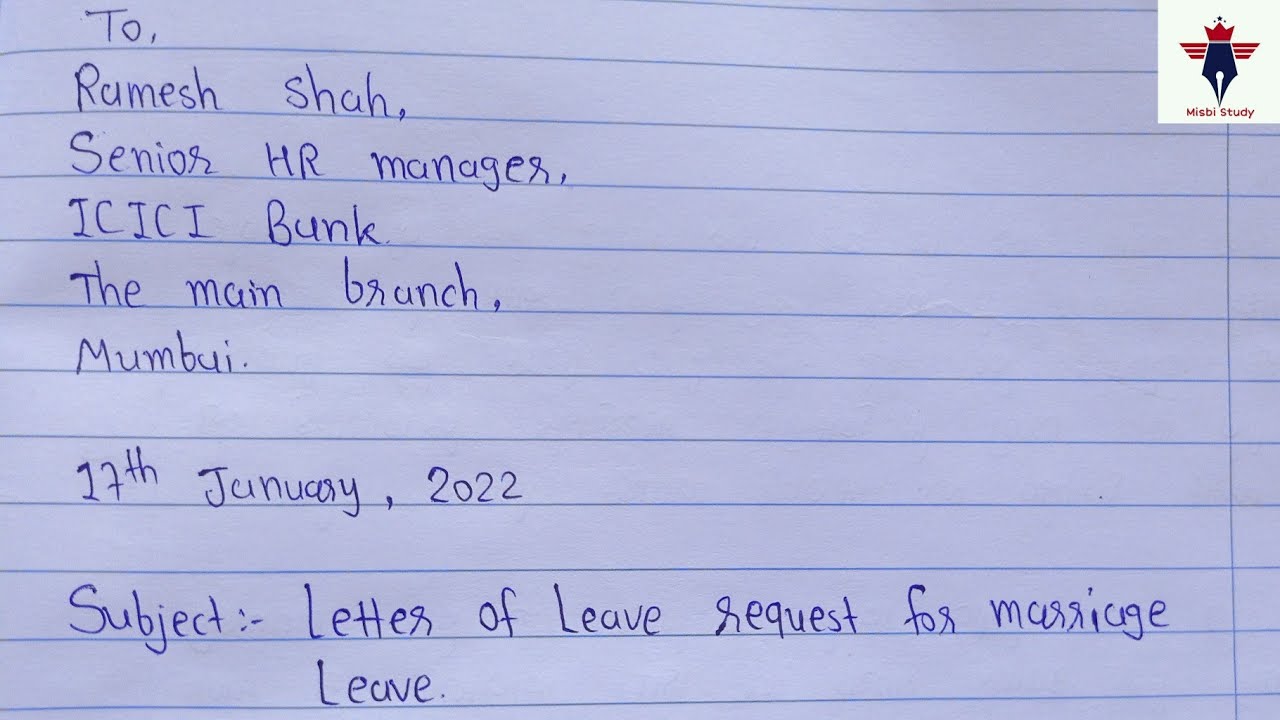 To,
Ramesh Shah,
Senior HR manager,
ICICI Bank.
The main branch,
Mumbai.
17th January, 2022
Subject:- Letter of Leave request for marriage
Leave.
Misbi Study